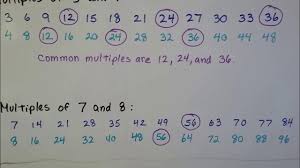 Multiples of 3 and 4:
3 6 9 12 15 18 21 24 27 30 33 36
4 8 12 16 20 24 28 32 36
Common multiples are 12, 24, and 36.
Multiples of 7 and 8:
7 14 21 28 35 42 49 56 63 70 77 84
8 16 24 32 40 48 56 64 72 80 88 96